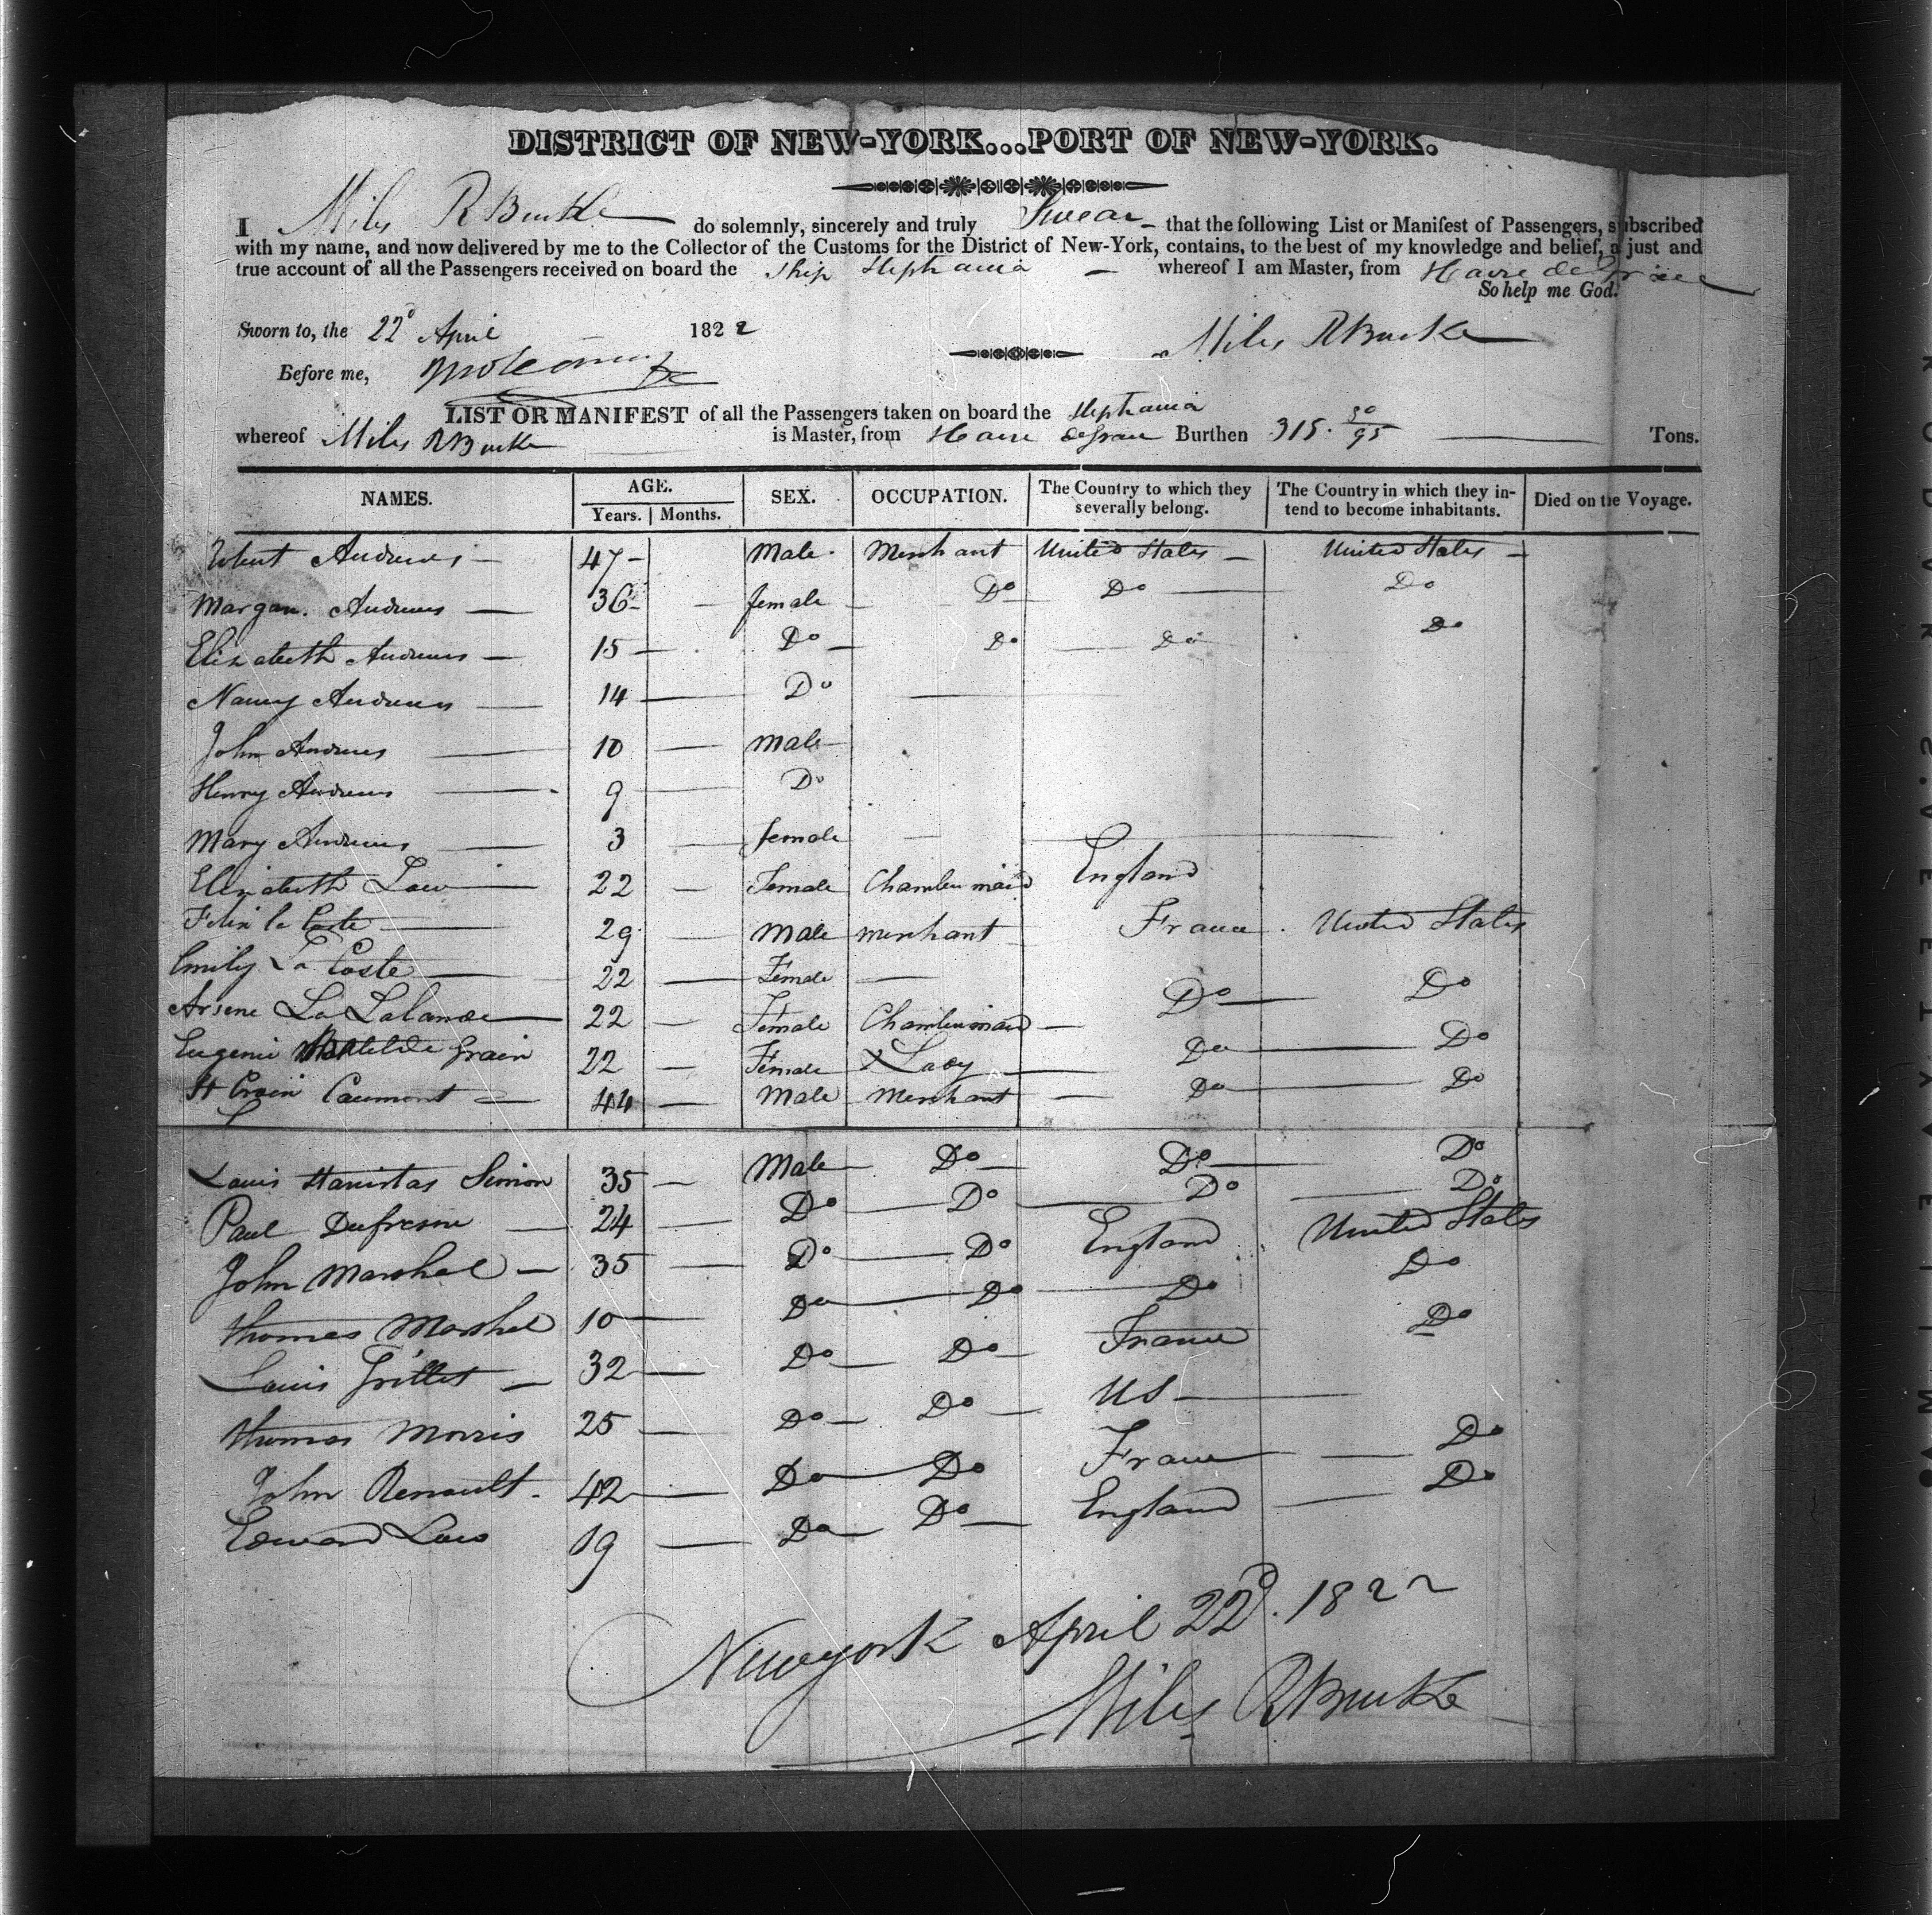 DISTRICT OF NEW-YORK...PORT OF NEW-YORK.
I Miles R Burke do solemnly, sincerely and truly Swear - that the following List or Manifest of Passengers, subscribed
with my name, and now delivered by me to the Collector of the Customs for the District of New-York, contains, to the best of my knowledge and belief, a just and
true account of all the Passengers received on board the Ship Stephania - whereof I am Master, from Havre de Grace
So help me God.
Sworn to, the 22d April 1822
Miles R Burke
Before me,
LIST OR MANIFEST of all the Passengers taken on board the Stephania
whereof Miles R Burke is Master, from Havre de Grace Burthen 315. 30/95 Tons.
NAMES. AGE. Years. Months. SEX. OCCUPATION. The Country to which they severally belong. The Country in which they intend to become inhabitants. Died on the Voyage.
Robert Andrews 47 Male Merchant United States United States
Margar. Andrews 36 female Do Do Do
Elizabeth Andrews 15 Do Do Do Do
Nancy Andrews 14 Do
John Andrews 10 Male
Henry Andrews 9 Do
Mary Andrews 3 female
Elizabeth Law 22 Female Chambermaid England
Felix la Coste 29 Male merchant France United States
Emily La Coste 22 Female
Arsene La Lalande 22 Female Chambermaid Do Do
Eugenie Matilde Grain 22 Female x Lady Do Do
St Croix Caumont 44 Male Merchant Do Do
Louis Stanislas Simon 35 Male Do Do Do
Paul Dufresne 24 Do Do Do Do
John Marshel 35 Do Do England United States
Thomas Marshel 10 Do Do Do Do
Louis Grillet 32 Do Do France Do
Thomas Morris 25 Do Do US
John Renault 42 Do Do France Do
Edward Law 19 Do Do England Do
Newyork April 22d. 1822
Miles R Burke